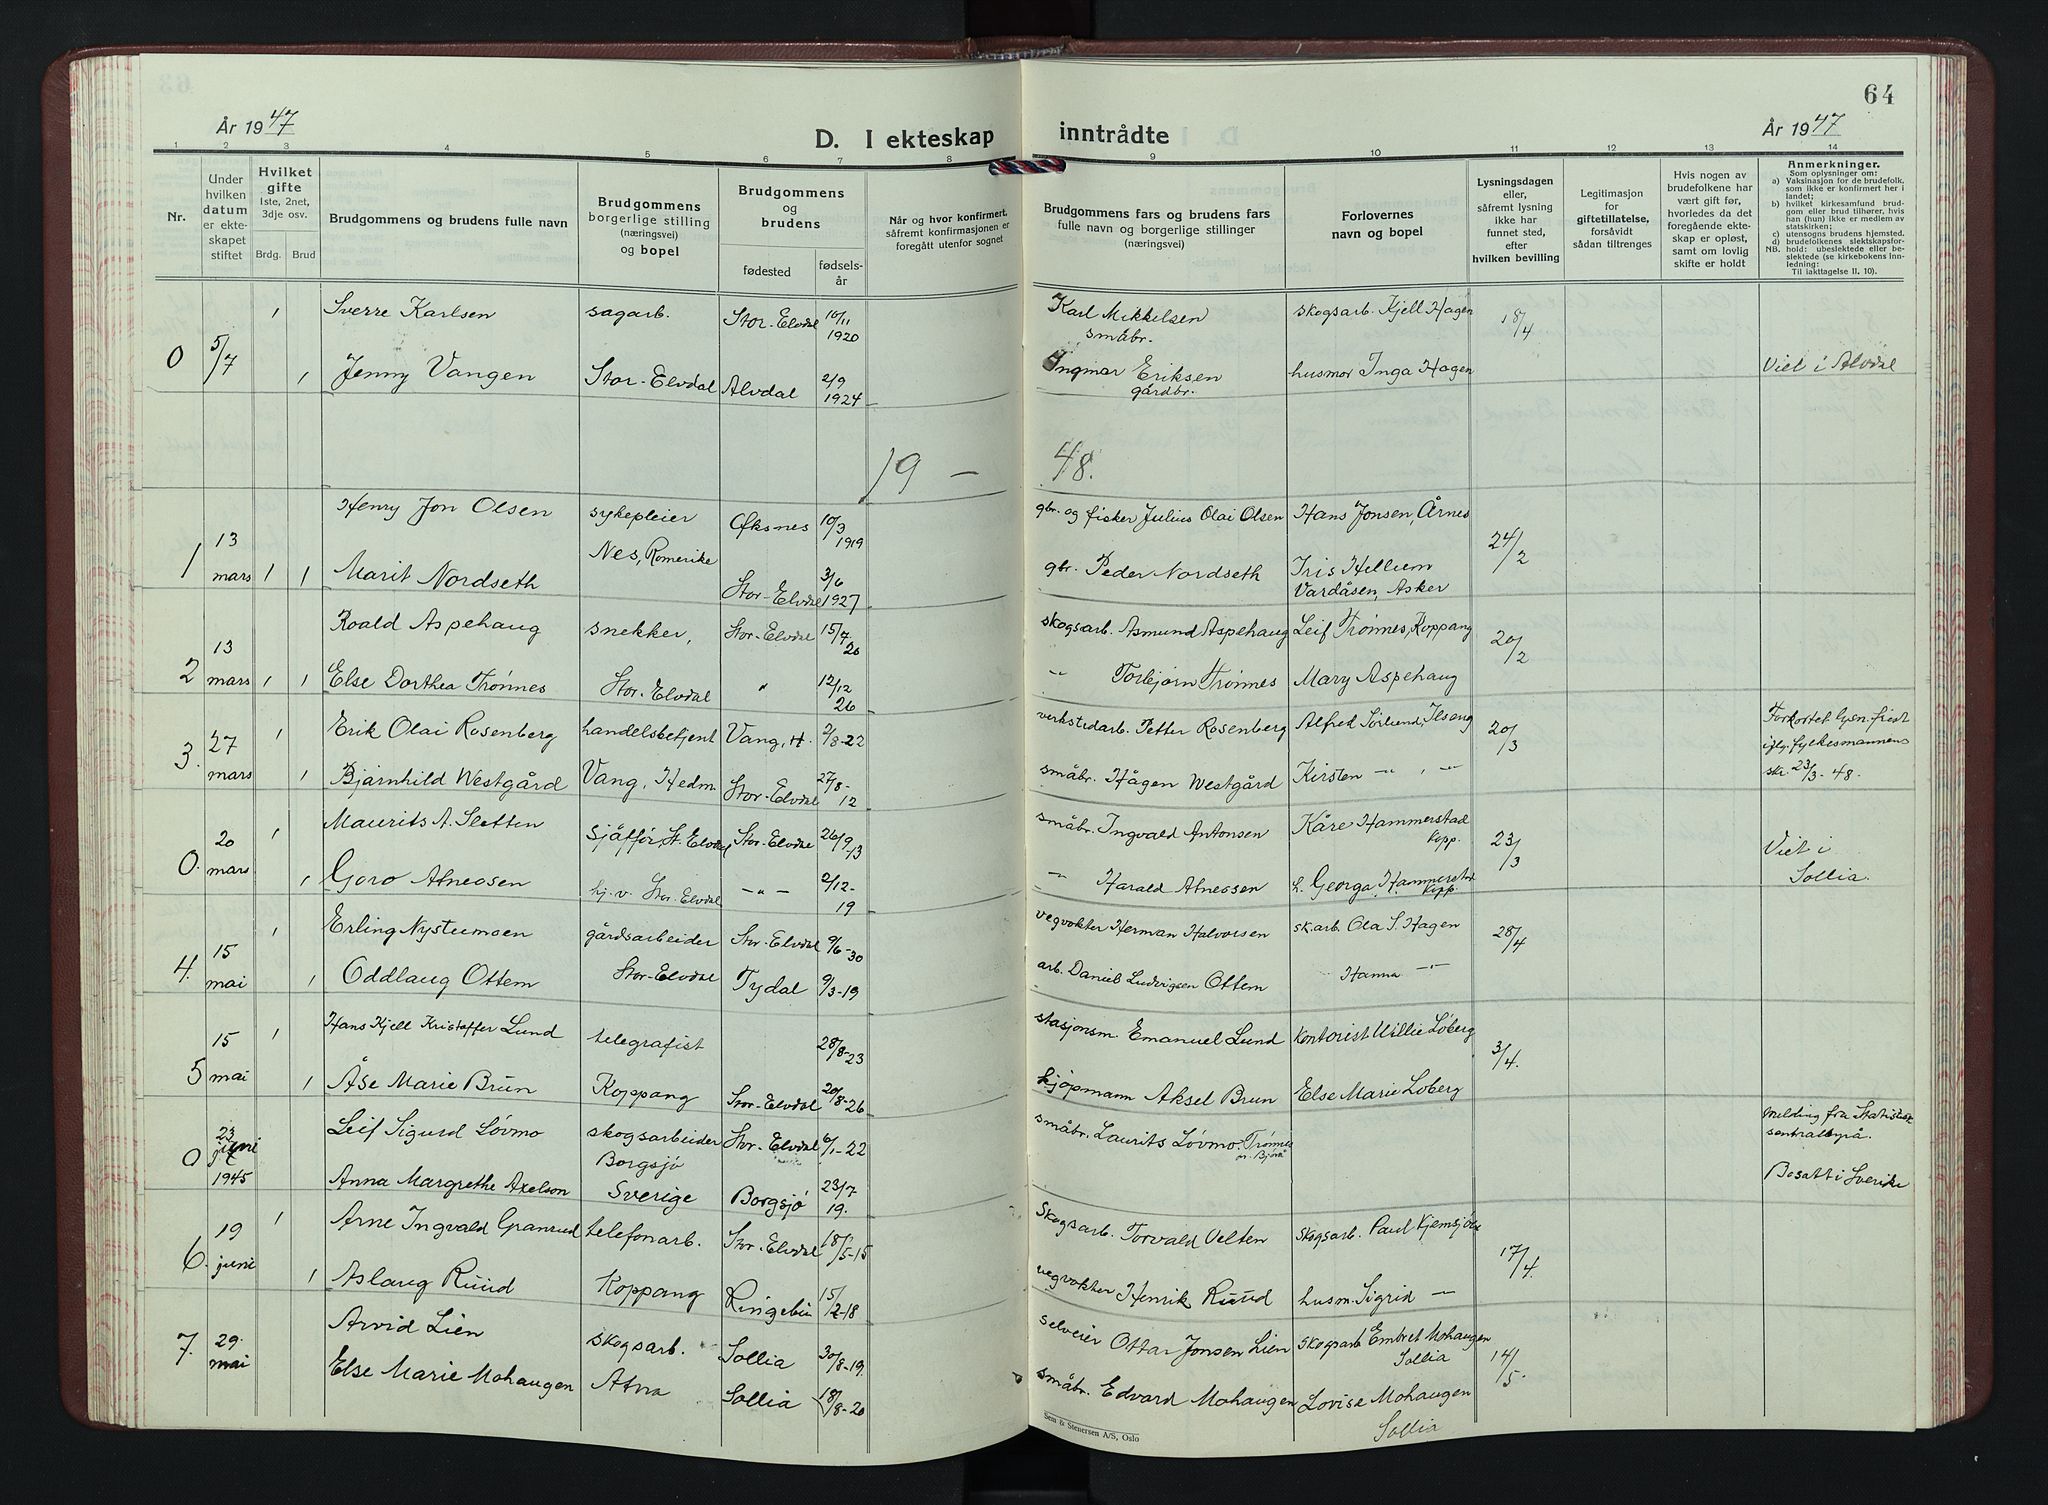 64
År 1947
D. I ekteskap inntrådte
År 1947
1 2 3 4 5 6 7 8 9 10 11 12 13 14
Nr.
Under hvilken datum er ekteskapet stiftet
Hvilket gifte 1ste, 2net, 3dje osv.
Brdg. Brud
Brudgommens og brudens fulle navn
Brudgommens borgerlige stilling (næringsvei) og bopel
Brudgommens og brudens
fødested
fødselsår
Når og hvor konfirmert, såfremt konfirmasjonen er foregått utenfor sognet
Brudgommens fars og brudens fars fulle navn og borgerlige stillinger (næringsvei)
Forlovernes navn og bopel
Lysningsdagen eller, såfremt lysning ikke har funnet sted, efter hvilken bevilling
Legitimasjon for giftetillatelse, forsåvidt sådan tiltrenges
Hvis nogen av brudefolkene har vært gift før, hvorledes da det foregående ekteskap er opløst, samt om lovlig skifte er holdt
Anmerkninger.
Som oplysninger om:
a) Vaksinasjon for de brudefolk, som ikke er konfirmert her i landet;
b) hvilket kirkesamfund brudgom eller brud tilhører, hvis han (hun) ikke er medlem av statskirken;
c) utensogns brudens hjemsted.
d) brudefolkenes slektskapsforhold: ubeslektede eller beslektede (se kirkebokens innledning:
NB. Til iakttagelse II, 10).
0 5/7 1 Sverre Karlsen sagarb. Stor-Elvdal 10/11 1920 Karl Mikkelsen småbr. skogsarb. Kjell Hagen 18/4
1 Jenny Vangen Stor-Elvdal Alvdal 2/9 1924 Ingmar Eriksen gårdbr. husmor Inga Hagen Viet i Alvdal
19 - 48.
1 13 mars 1 1 Henry Jon Olsen sykepleier Øksnes 10/3 1919 gbr. og fisker Julius Olai Olsen Hans Jonsen, Årnes 24/2
Marit Nordseth Nes, Romerike Stor-Elvdal 3/6 1927 gbr. Peder Nordseth Iris Hellum Vardåsen, Asker
2 13 mars 1 1 Roald Aspehaug snekker, Stor-Elvdal 15/4 20 skogsarb. Asmund Aspehaug Leif Trønnes, Koppang 20/2
Else Dorthea Trønnes Stor-Elvdal " 12/12 26 -"- Torbjørn Trønnes Mary Aspehaug
3. 27 mars 1 Erik Olai Rosenberg handelsbetjent Vang, H. 2/8-22 verkstedarb. Petter Rosenberg Alfred Sørlund, Ilseng 20/3 Forkortet lysn. frist iflg. fylkesmannens skr. 23/3-48.
1 Bjarnhild Westgård Vang, Hedm. Stor-Elvdal 27/8-12 småbr. Hågen Westgård Kirsten -"- , -"-
0. 20 mars 1 Maurits A. Sletten sjåfør, St. Elvdal Stor-Elvdal 26/9-13 småbr. Ingvald Antonsen Kåre Hammerstad Kopp. 23/3 Viet i Sollia.
1 Goro Atneosen hj. v. Stor-Elvdal -"- 2/12-19 -"- Harald Atneosen h. Georga Hammerstad Kopp.
4. 15 mai 1 Erling Nystumoen gårdsarbeider Stor-Elvdal 9/6-30 vegvokter Herman Halvorsen sk.arb. Ola S. Hagen 28/4
1 Oddlaug Ottem Stor-Elvdal Tydal 9/3-19 arb. Daniel Ludvigsen Ottem Hanna -"-
5 15 mai 1 Hans Kjell Kristoffer Lund telegrafist 28/8-23 stasjonsm. Emanuel Lund Kontorist Willie Løberg 3/4.
1 Åse Marie Brun Koppang Stor-Elvdal 20/8-26 kjøpmann Aksel Brun Else Marie Løberg
0 23 juni 1945 Leif Sigurd Løvmo skogsarbeider Stor-Elvdal 6/1-22 småbr. Laurits Løvmo. Trønnes Melding fra Statistisk sentralbyrå.
Anna Margrethe Axelson Borgsjø Sverige Borgsjø 23/7 19. Bosatt i Sverike
6. 19 juni 1 Arne Ingvald Granrud telefonarb. Stor-Elvdal 18/5-15 Skogsarb. Torvald Velten skogsarb. Paul Kjemsjøen 17/4.
1 Aslaug Ruud Koppang Ringebu 15/2-18 vegvokter Henrik Ruud husm. Sigrid -"-
7. 29. mai Arvid Lien skogsarb. Sollia 30/8-19. selveier Ottar Jonsen Lien skogsarb Embret Mohaugen Sollia 14/5.
Else Marie Mohaugen Atna Sollia 18/8-20 småbr. Edvard Mohaugen Lovise Mohaugen Sollia
Sem & Stenersen A/S, Oslo